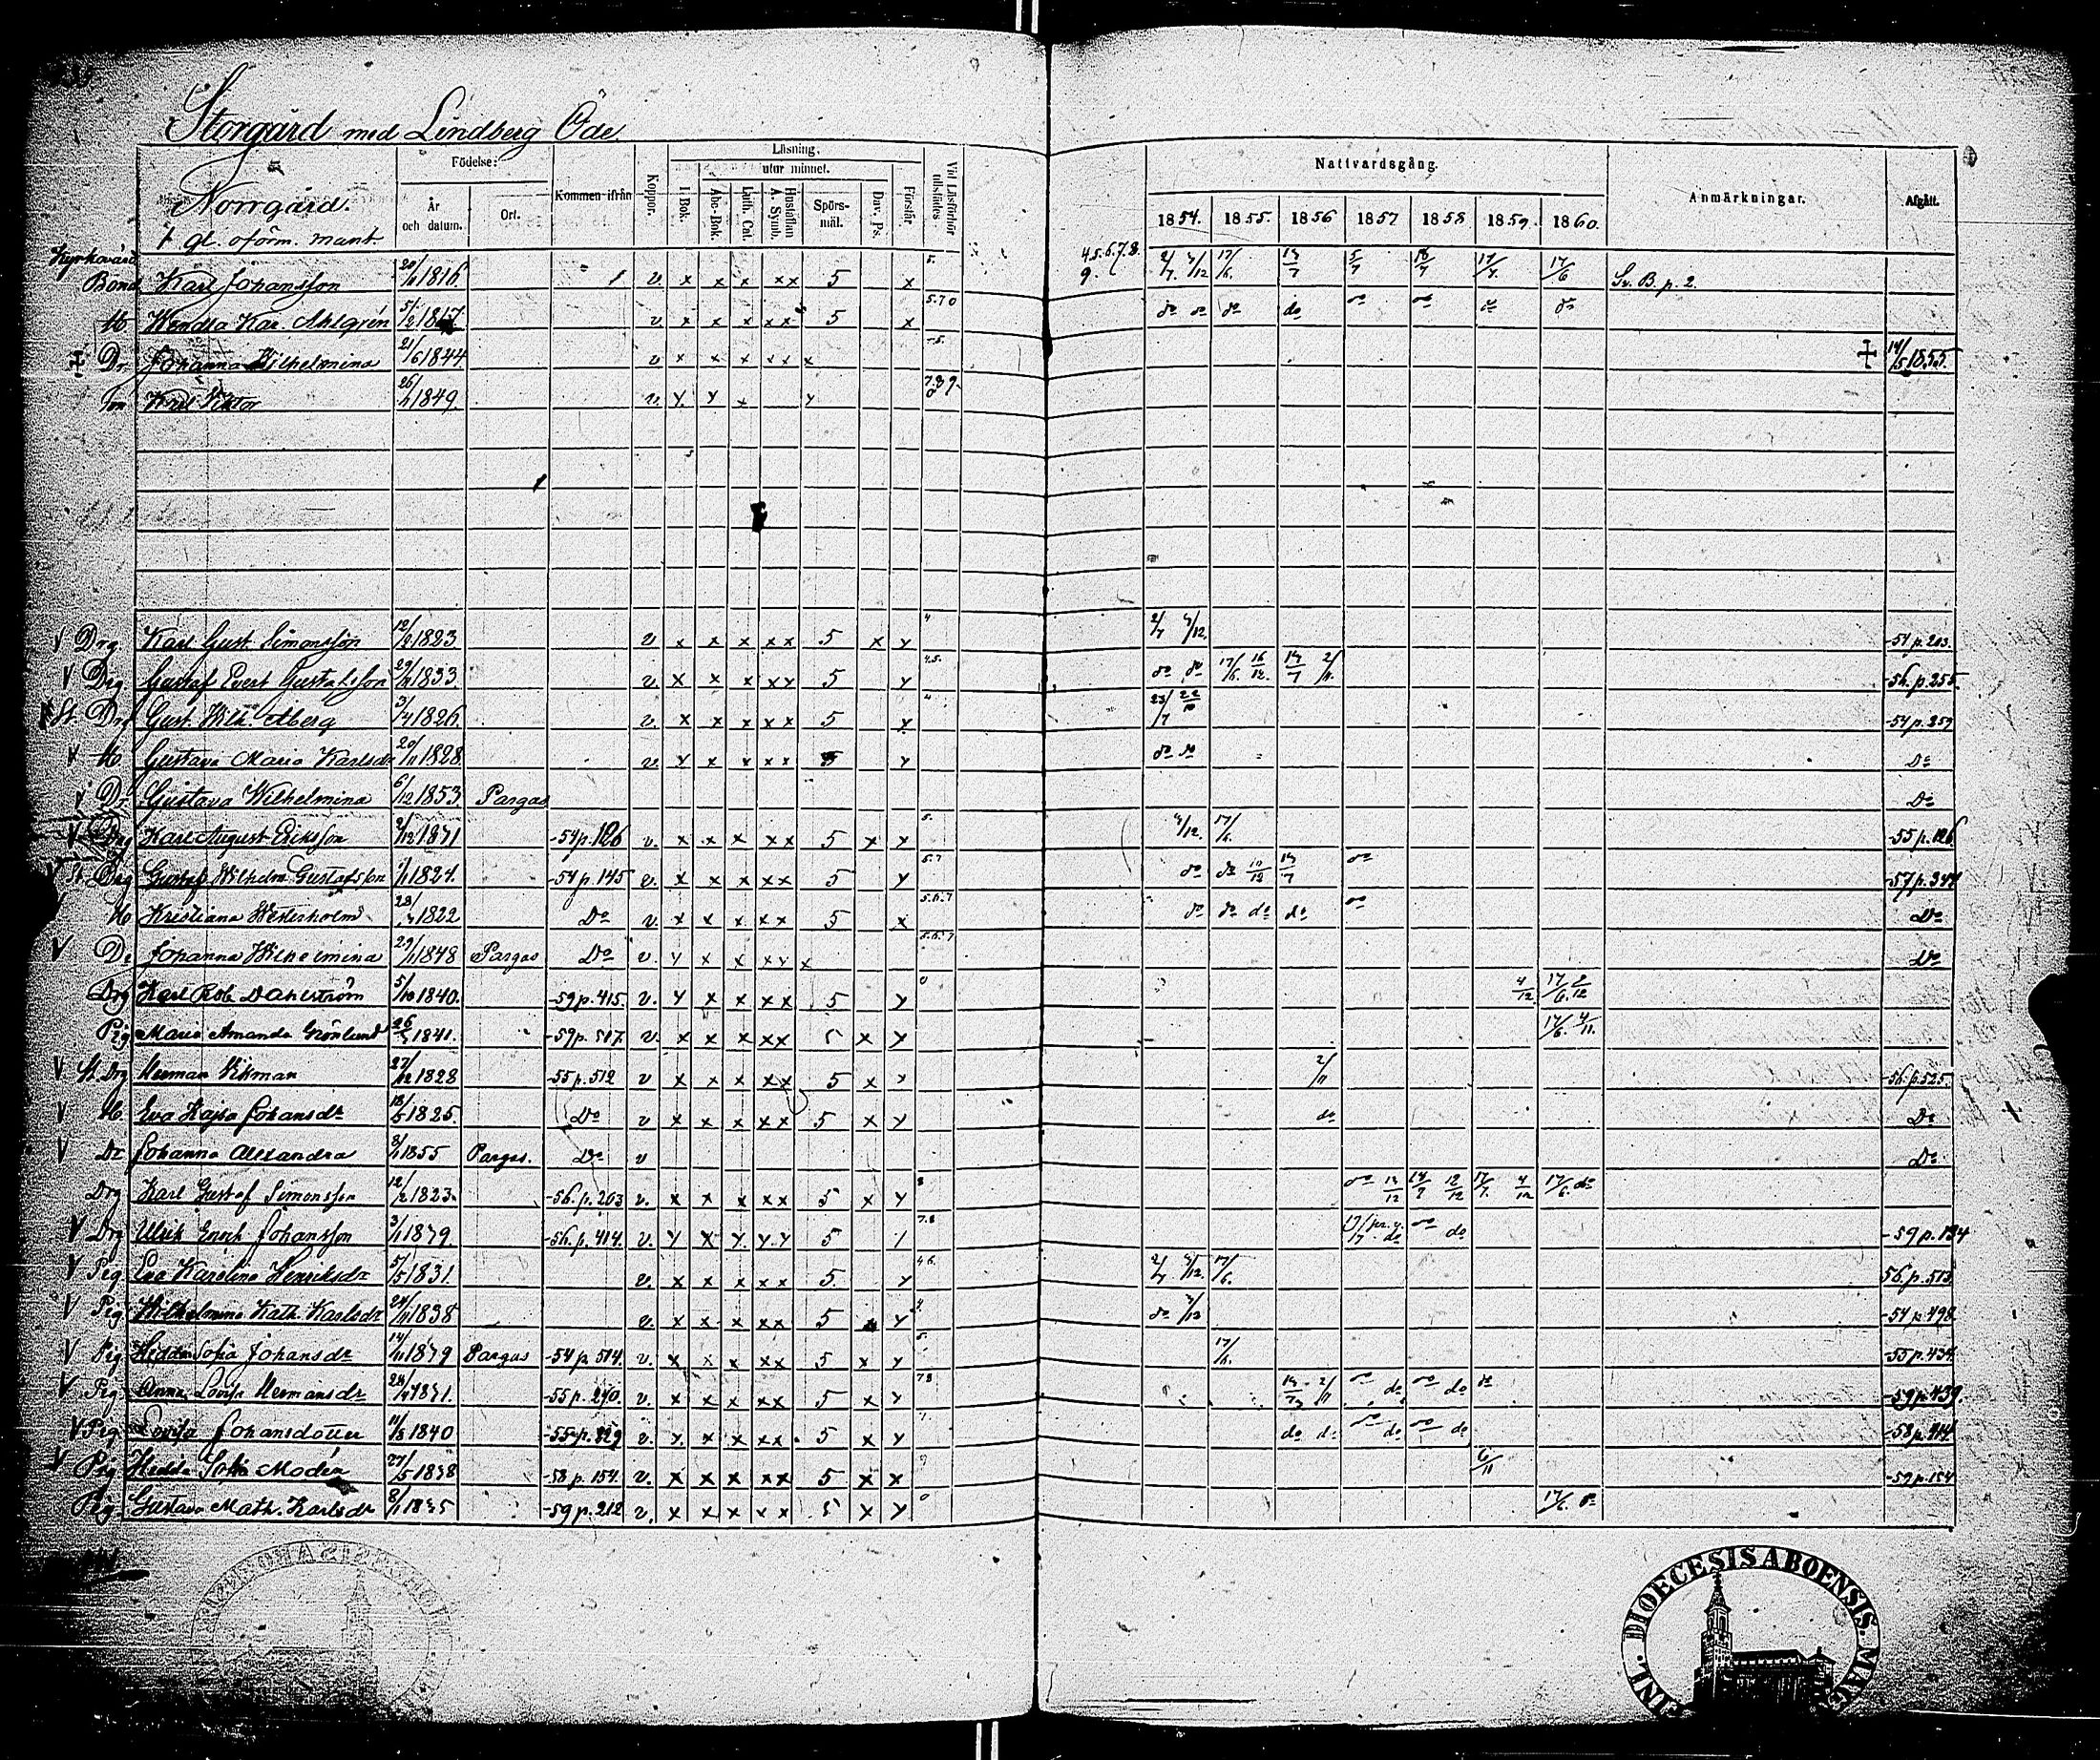 Storgård med Lindberg Öde
Norrgård.
1 gl. oförm. mant.
Födelse: År och datum. Ort. Kommen ifrån Koppor. Läsning. I Bok. utur minnet. Abc-Bok. Luth. Cat. Hustaflan A. Symb. Spörs-mål. Dav. Ps. Förstår. Vid Läsförhör tillstädes
Nattvardsgång. 1854. 1855. 1856 1857 1858 1859. 1860. Anmärkningar. Afgått.
Kyrkovärd
Bond Karl Johansson 20/6 1816. v x x x xx 5 x 5. 4.5.6.7.8. 9. 2/7. 3/12 17/6. 13/7 5/7 18/7 17/7. 17/6 Sv. B. p. 2.
H Wendla Kar. Ahlgrén 5/2 1817. v x x x xx 5 x 5.7.0 do do do do do do do do
‡ Dr Johanna Wilhelmina 21/6 1844. v x x x xx x ‡ 14/5 1855.
Son Karl Viktor 26/1 1849. v. y y x y
V Drg Karl Gust. Simonsson 12/2 1823 v x x x xx 5 x y 4 2/7 3/12. -54 p. 203.
V Drg Gustaf Evert Gustafsson 29/11 1833. v. x x x xy 5 y 4.5. do do 17/6. 16/12. 13/7 2/11. -56. p. 255.
St. Drg Gust. Wilh. Åberg 3/4 1826. v. x x x xx 5 x 4 23/7 22/10 -54 p. 259
V H Gustava Maria Karlsdr 20/11 1828. v. y x x xx 5 y do do Do
V Dr Gustava Wilhelmina 6/12 1853. Pargas Do
V Drg Karl August Eriksson 2/12 1831 -54 p. 126 v. x x x xx 5 x x 5. 3/12. 17/6. -55 p. 126
St. Drg Gustaf Wilhelm Gustafsson 1/1 1824. -54 p. 145 v. x x x xx 5 y 5.7 do do 13/7 do -57 p. 347
H Kristiana Westerholm 28/ 1822 Do v. x x x xx 5 x 5.6.7 do do do do do Do
V Dr Johanna Wilhelmina 29/1 1848 Pargas Do v. y x x xy x 5.6.7 Do
Drg Karl Rob. Dahlström 5/10 1840. -59 p. 415. v. y x x xx 5 y 0 4/12. 17/6. 2/12
Pig Maria Amanda Grönlund 26/5 1841. -59 p. 517. v. x x x xx 5 x y 17/6. 4/11.
V St. Drg Herman Vikman 27/12 1828 -55 p. 512 v x x x xx 5 x y 2/11 -56. p. 525.
V H. Eva Kajsa Johansdr 18/5 1825. Do v x x x xx 5 x y do Do
V Dr Johanna Alexandra 8/1 1855 Pargas. Do v Do
Drg Karl Gustaf Simonsson 12/2 1823. -56. p. 203 v. x x x xx 5 x y 8 do 13/12 18/7 12/12 17/7. 4/12 17/6. do
V Drg Ulrik Enok Johansson 3/1 1839. -56. p. 414. v. y x y. y.y 5 7.8 do do -59 p. 134
V Pig Eva Karolina Henriksdr 5/5 1831. v. x x x xx 5. y 4 6. 2/7 3/12. 17/6. 56. p. 513.
V Pig Wilhelmina Kath. Karlsdr 24/11 1838 v. x x x xx 5 y 4. do 3/12 -54 p. 498
V Pig Hedda Sofia Johansdr 14/11 1839 Pargas -54 p. 514. v. x x x xx 5 x y 5. 17/6. -55 p. 434.
V Pig Anna Lovisa Hermansdr 1831. -55 p. 240. v. x x x xx 5 x y 7 8 13/7 2/11 do do do do do -59 p. 439.
V Pig Lovisa Johansdotter 11/5 1840 -55 p. 329 v. y. x x xx. 5 x y do do do do do do -58 p. 414.
V Pig Hedda Sofia Modén 27/5 1838 -58 p. 154. v. x x x xx 5 x x 9 6/11 -59 p. 154
Pig Gustava Math. Karlsdr 8/1 1835 -59 p. 212 v. x x x xx 5 x y 0 17/6. do
FINL. DIOECESIS ABOENSIS. MAG